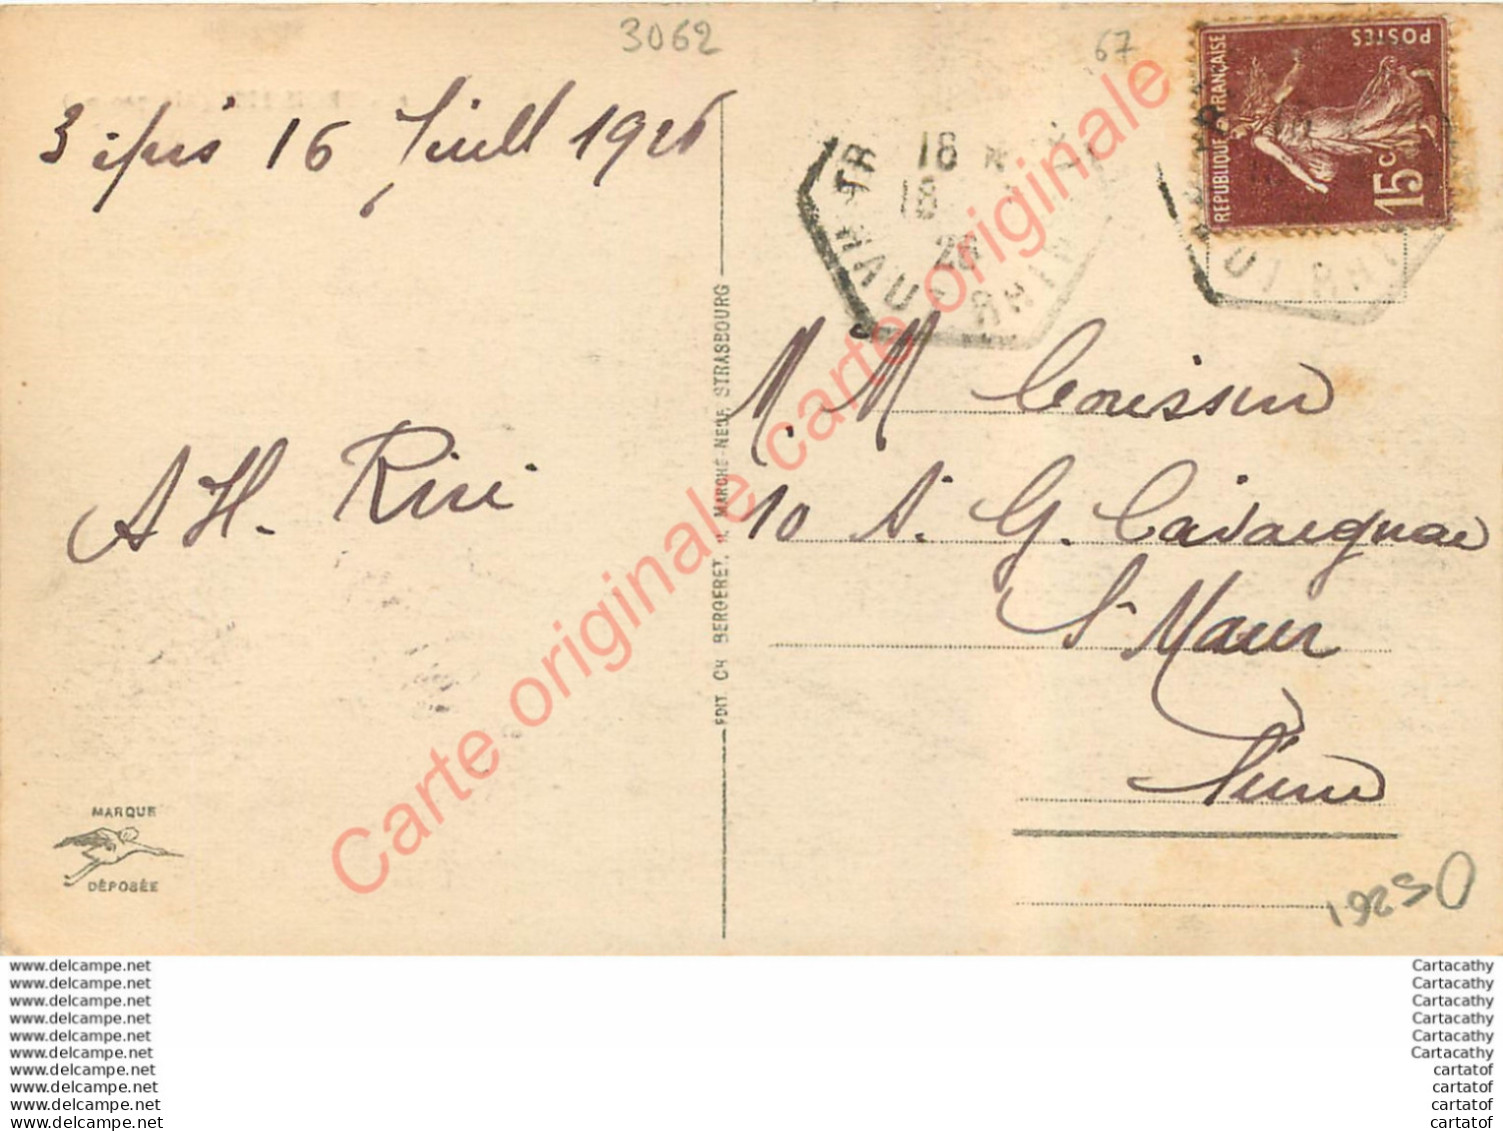 3062
67
3 épis 16 Juill 1926
POSTES
REPUBLIQUE FRANÇAISE
15c
18
18
26
HAUT RHIN
M. M Coussin
A H. Riri
10 A. G. Cavaignac
St Maur
Seine
EDIT CH BERGERET, MARCHÉ-NEUF STRASBOURG
Carte originale carte originale
MARQUE
DÉPOSÉE
www.delcampe.net
www.delcampe.net
www.delcampe.net
www.delcampe.net
www.delcampe.net
www.delcampe.net
www.delcampe.net
www.delcampe.net
www.delcampe.net
www.delcampe.net
Cartacathy
Cartacathy
Cartacathy
Cartacathy
Cartacathy
Cartacathy
cartatof
cartatof
cartatof
cartatof